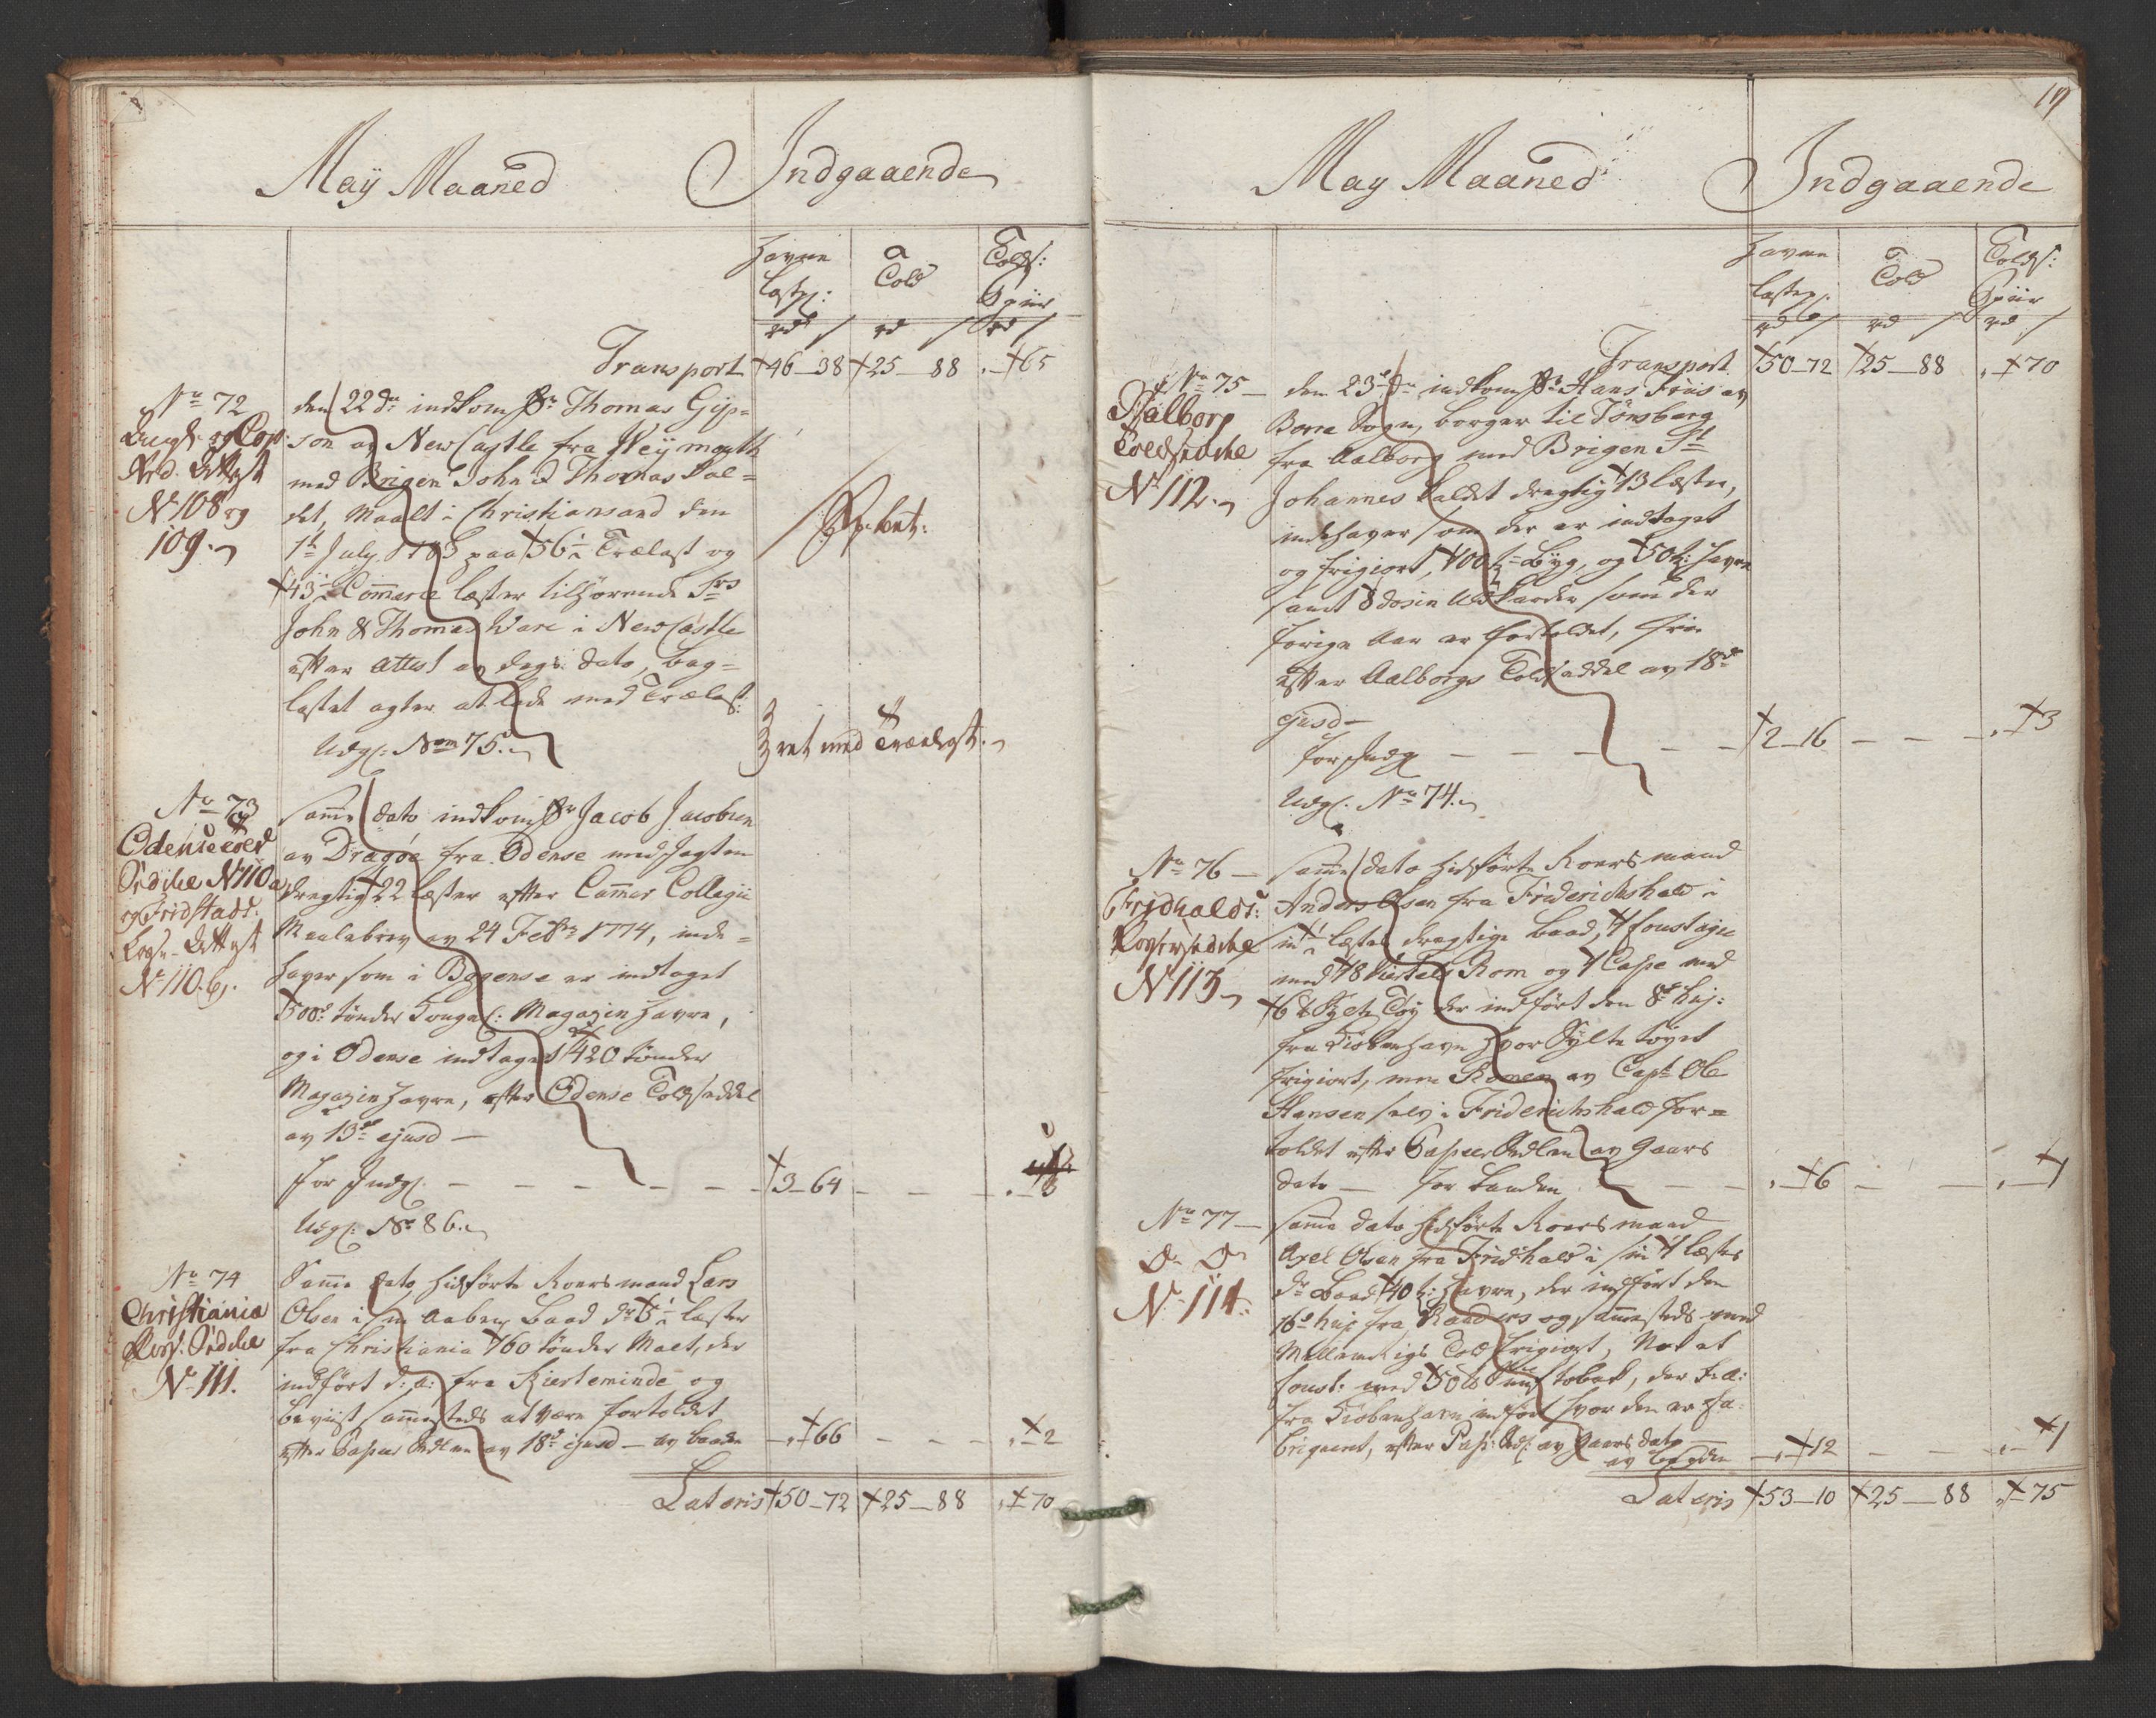 May Maaned Indgaaende
Havne Told Toldst:
Lastp: Spür
rd rd rd
Transport 46_38 25_88 65
No 72
og
Attest
No 108 og
109.
den 22 dn indkom Sr Thomas Gip=
son av New Castle fra Weymouth
med Brigen John & Thomas kal=
det, Maalt i Christiansand den
1te July paa 56 1/2 Trælast og
43 1/2 Commerce læster tilhørende Srs
John & Thomas Ware i New Castle
efter Attest av dags dato, bag=
lastet agter at lade med Trælast:
Udg: No 75.
ret med Trælast.
No 73
Odense Told
Sedele No 110 a
og Fridstads:
Attest
No 110. b.
Samme dato indkom Sr Jacob Jacobsen
av Dragøe fra Odense med Jagten
drægtig 22 læster efter Cammer Collegii
Maalebrev av 24 Febr 1774, inde=
haver som i Bogense er indtaget
500 tønder Magazin Havre,
og i Odense indtaget 420 tønder
Magazin Havre, efter Odense Toldseddel
av 13de ejusd _
for Indg: 3_64
Udg: No 86.
No 74
Christiania
Sedele
No 111.
Samme dato hidførte Roersmand Lars
Olsen i sin aaben Baad dr 5 1/2 læster
fra Christiania 160 tønder Malt, der
indført d: a: fra Kierteminde og
beviist sammesteds at være fortoldet
efter Passeer Sedlen av 18d ejusd _ av baaden 66 2
Lateris 50_72 25_88 70
19
May Maaned Indgaaende
Havne Told Toldst:
Lastep. Spür
rd rd rd
Transport 50_72 25_88 70
No 75
Aalborg
Toldsedele
No 112.
den 23de dn indkom Sr Hans Friis av
Borre Sogn, borger til Tønsberg
fra Aalborg med Brigen St
Johannes kaldet drægtig 13 læster,
indehaver som der er indtaget
og frigiort, 100 t Byg, og 50 t: Havre
samt 8 dosin Uldkarder som der
forige Aar er fortoldet, frie
efter Aalborgs Toldseddel av 18de
ejusd _
for Indg 2_16 3
Udg: No 74.
No 76
Fridhalds:
Sedele
No 113
Samme dato hidførte Roersmand
Anders Olsen fra Friderichshald i
sin 1/2 læster drægtige Baad, 1 foustage
med 18 Viertel Rom og 1 Casse med
6 lb Sylte Tøy der indført den 8de huj:
fra Kiøbenhavn hvor Sylte tøyet
frigiort, men Romen av Capt Ole
Hansen selv i Friderichshald for=
toldet efter Passeer Sedlen av Gaars
dato _ for baaden 6 1
No 77
Do Do
No 114.
Samme dato hidførte Roersmand
Axel Olsen fra Fridhald i sin 1 læster
dr Baad 40 t: Havre, der indført den
16de huj fra Randers og sammesteds med
Told frigiort, Nok et
foust: med 50 lb tobak, der
fra Kiøbenhavn indført hvor den er fa=
briqueret, efter Pass: Sed: av Gaars dato
av baaden 12 1
Lateris 53_10 25_88 75